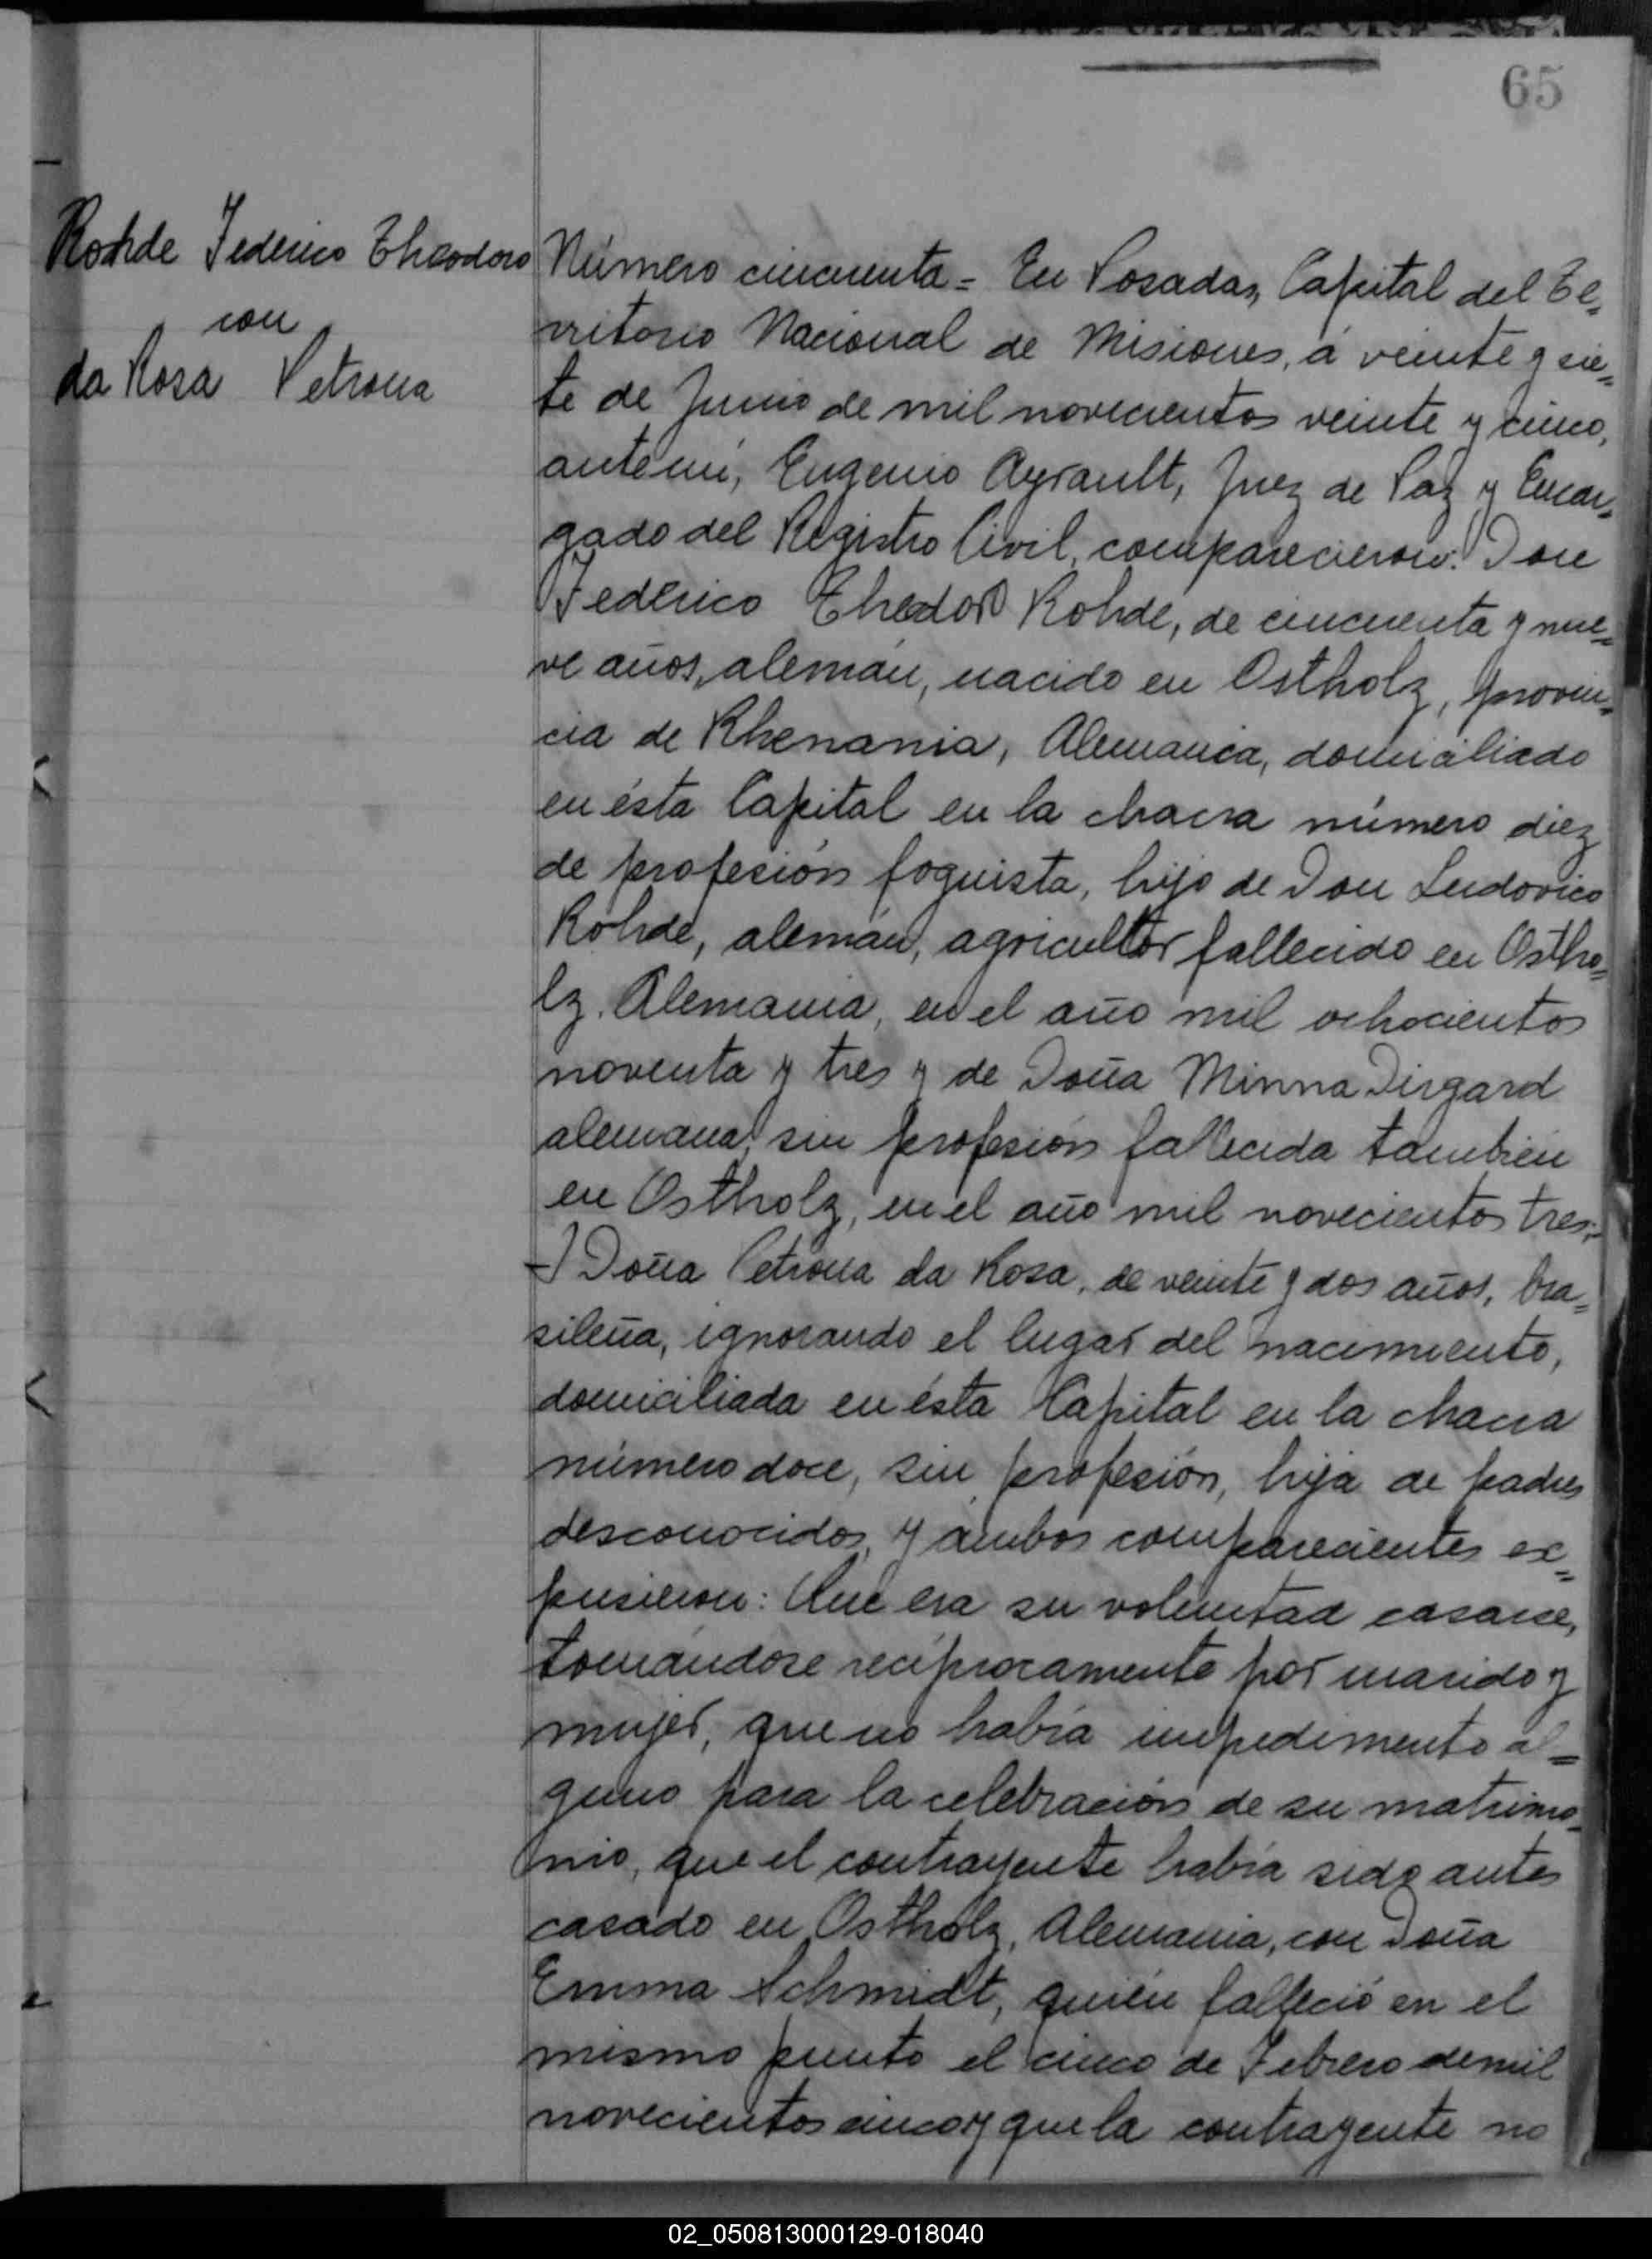 65
Rohde Federico Theodoro
con
da Rosa Petrona
Número cincuenta = En Posadas, Capital del Te=
rritorio Nacional de Misiones, á veinte y sie=
te de Junio de mil novecientos veinte y cinco,
ante mí, Eugenio Ayrault, Juez de Paz y Encar=
gado del Registro Civil, comparecieron: Don
Federico Thedor Rohde, de cincuenta y nue=
ve años, alemán, nacido en Ostholz, provin=
cia de Rhenania, Alemania, domiciliado
en ésta Capital en la chacra número diez
de profesión foguista, hijo de Don Ludovico
Rohde, alemán, agricultor fallecido en Ostho=
lz. Alemania, en el año mil ochocientos
noventa y tres y de Doña Minna Dirgard
alemana, sin profesión fallecida también
en Ostholz, en el año mil novecientos tres;
- Y Doña Petrona da Rosa, de veinte y dos años, bra=
sileña, ignorando el lugar del nacimiento,
domiciliada en ésta Capital en la chacra
número doce, sin profesión, hija de padres
desconocidos, y ambos comparecientes ex=
pusieron: Que era su voluntad casarse,
tomándose recíprocamente por marido y
mujer, que no había impedimento al=
guno para la celebración de su matrimo=
nio, que el contrayente había sido antes
casado en Ostholz, Alemania, con Doña
Emma Schmidt, quién falleció en el
mismo punto el cinco de Febrero de mil
novecientos cinco y que la contrayente no
02_050813000129-018040